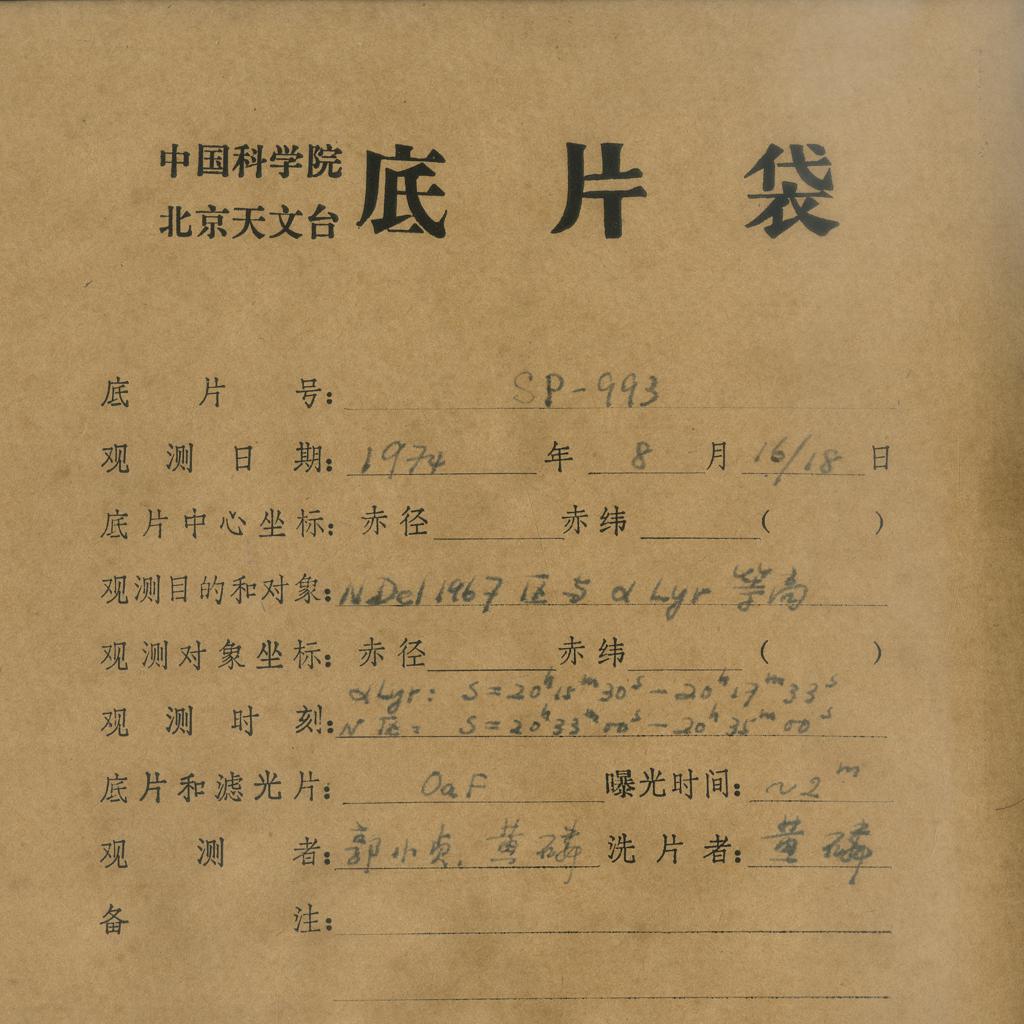 中国科学院
北京天文台
底片袋
底片号: SP-993
观测日期: 1974 年 8 月 16/18 日
底片中心坐标: 赤径 赤纬 ( )
观测目的和对象: N Del 1967 区与 α Lyr 等高
观测对象坐标: 赤径 赤纬 ( )
αLyr: S=20ʰ15ᵐ30ˢ-20ʰ17ᵐ33ˢ
观测时刻: N区: S=20ʰ33ᵐ00ˢ-20ʰ35ᵐ00ˢ
底片和滤光片: OaF 曝光时间: ~2ᵐ
观测者: 郭小贞. 黄磷 洗片者: 黄磷
备注: